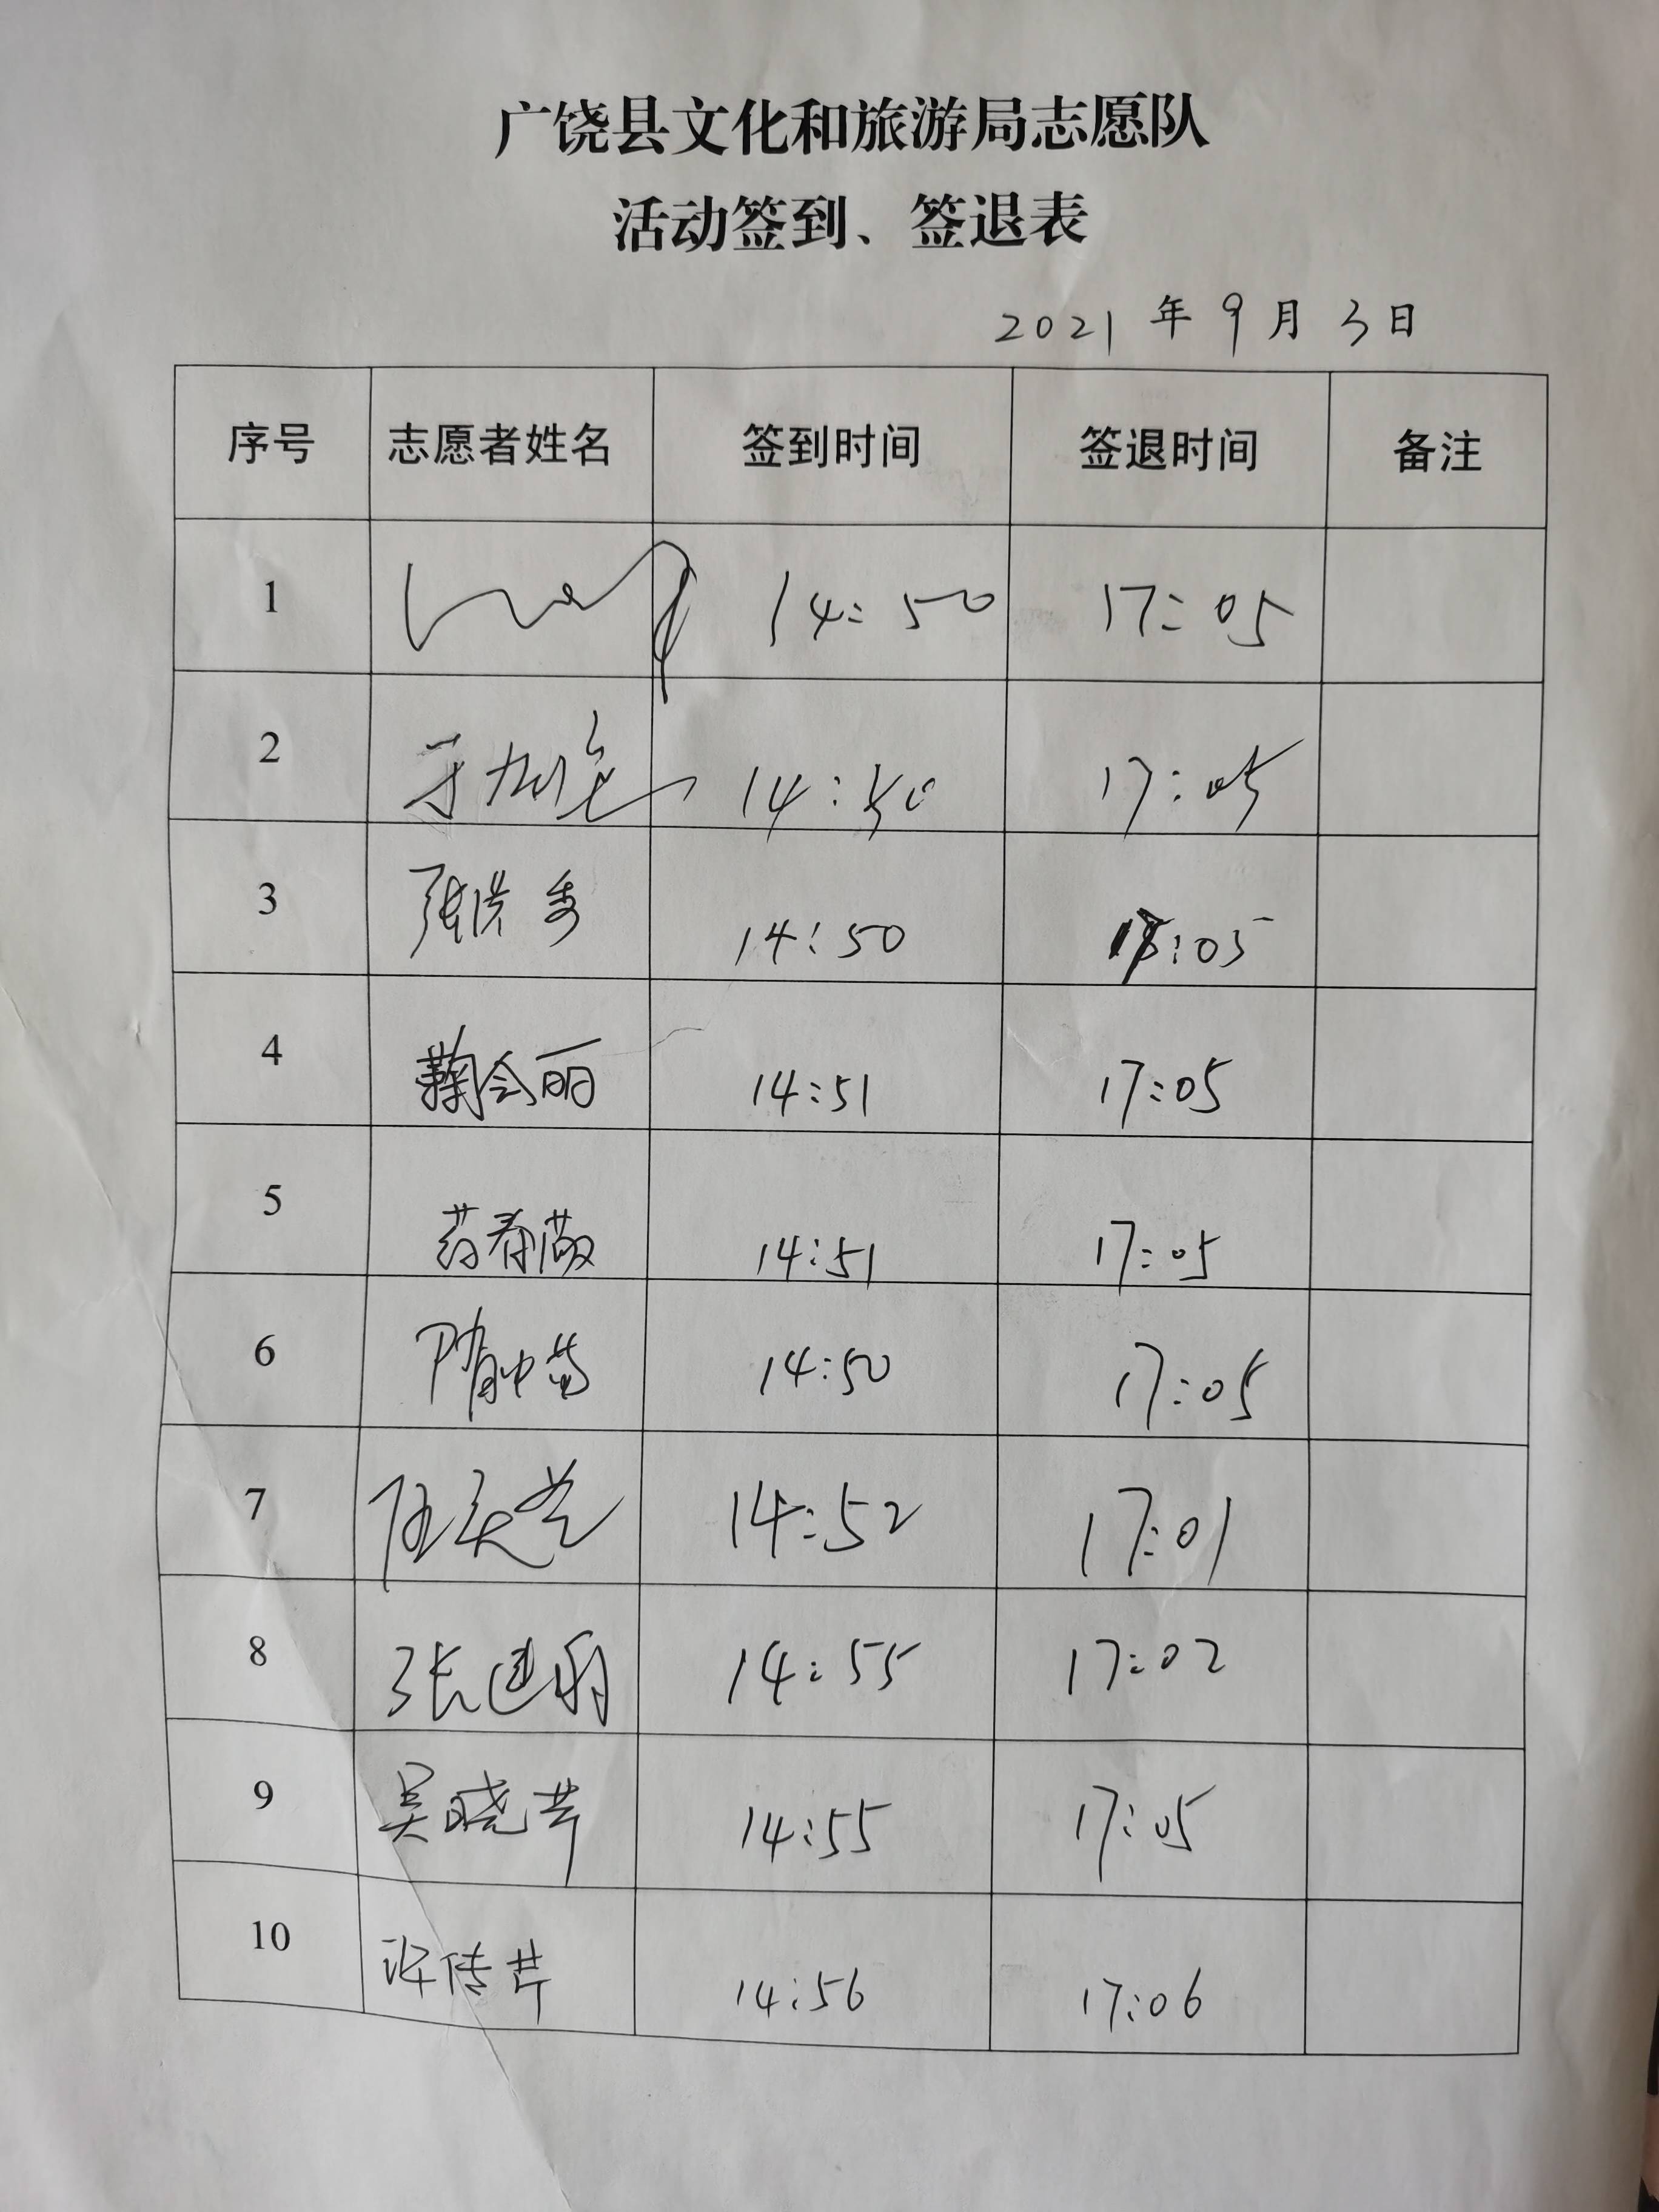 广饶县文化和旅游局志愿队
活动签到、签退表
2021 年 9 月 3 日
序号 志愿者姓名 签到时间 签退时间 备注
1 14:50 17:05
2 14:50 17:05
3 张洪香 14:50 17:05
4 鞠会丽 14:51 17:05
5 14:51 17:05
6 14:50 17:05
7 14:52 17:01
8 张建 14:55 17:02
9 吴晓芹 14:55 17:05
10 许传芹 14:56 17:06